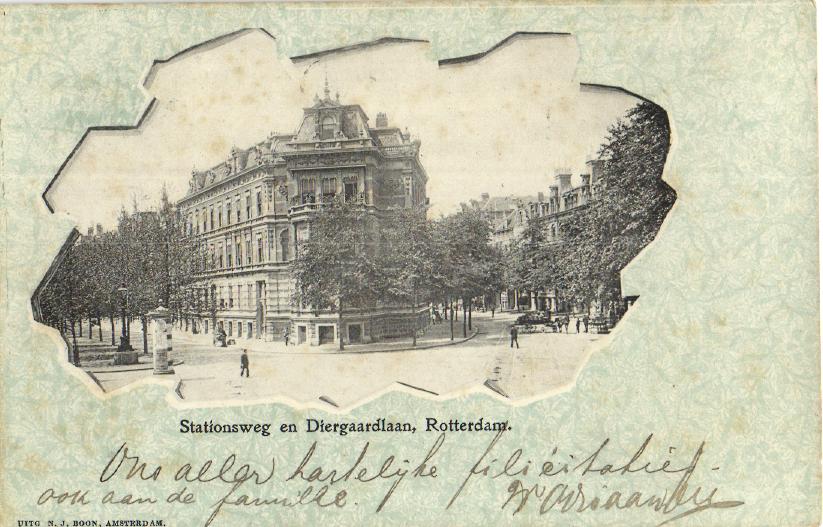 Stationsweg en Diergaardlaan, Rotterdam.
Ons aller hartelijke
ook aan de familie.
UITG N. J. BOON, AMSTERDAM.